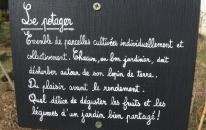 Le potager
Ensemble de parcelles cultivées individuellement et
collectivement. Chacun, en bon jardinier, doit
désherber autour de son lopin de terre.
Du plaisir avant le rendement.
Quel délice de déguster les fruits et les
légumes d'un jardin bien partagé !